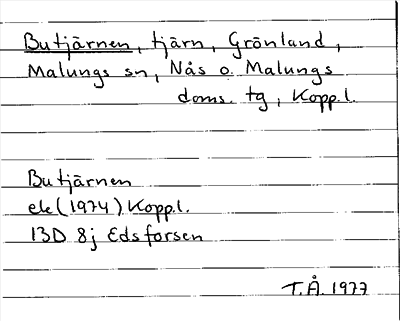 Butjärnen, tjärn, Grönland,
Malungs sn, Nås o. Malungs
doms. tg, Kopp.l.
Butjärnen
ek (1974) Kopp.l.
13D 8j Edsforsen
T.Å. 1977